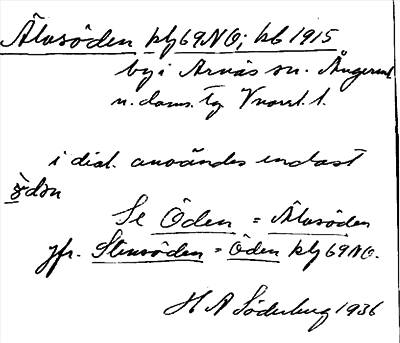 Älvsöden kbl 69NO; kb 1915
by i Arnäs sn. Ångerml.
n. doms. Tg Vnorrl. l.
i dial. användes endast
ödən
Se Öden = Älvsöden
jfr. Stensöden = Öden kbl 69NO.
H A Söderberg 1936